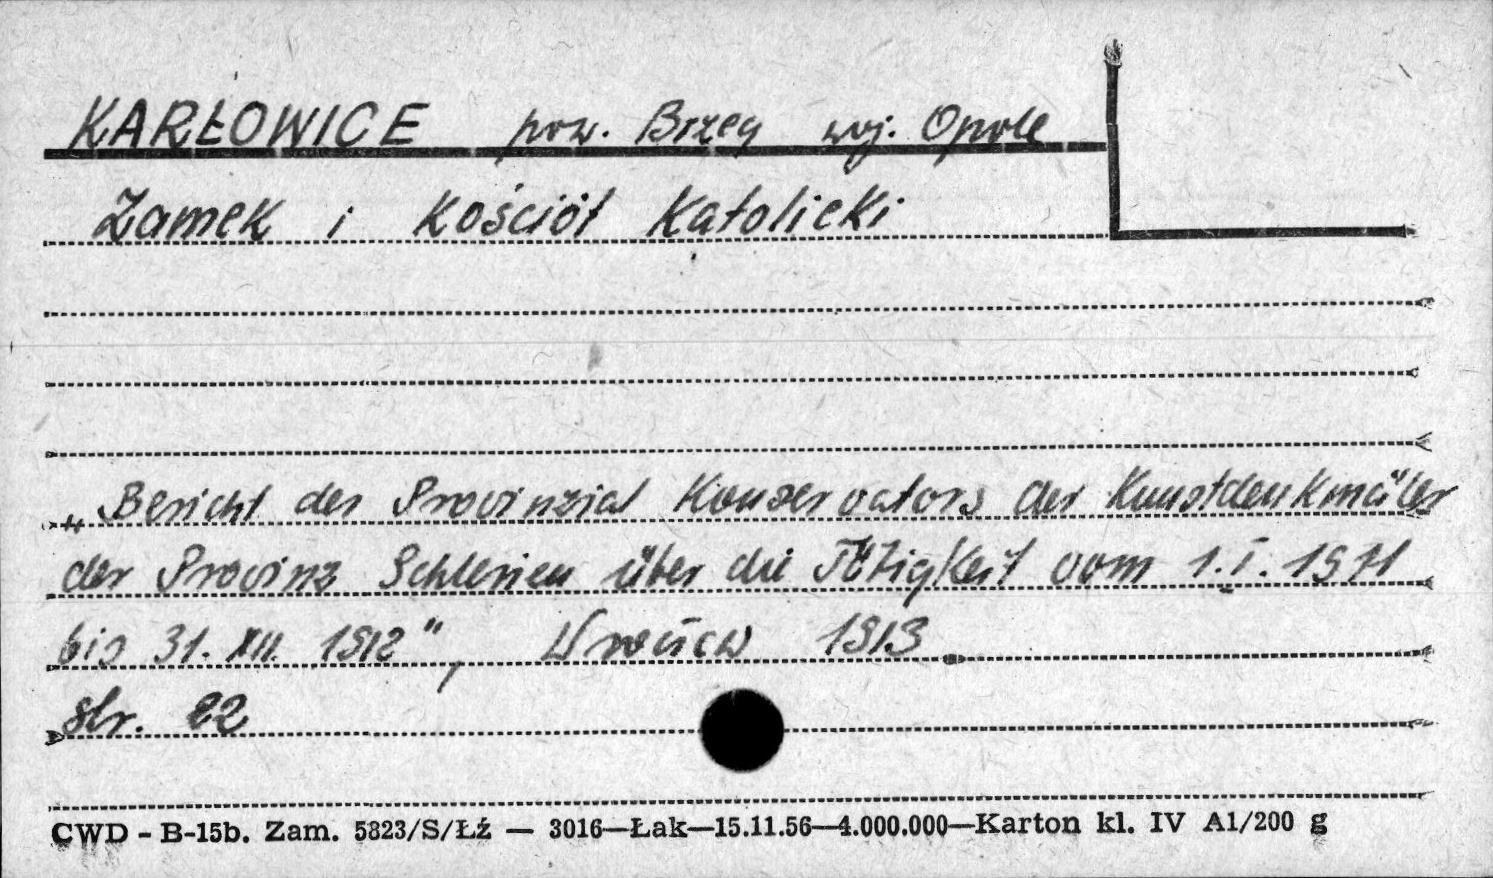 KARŁOWICE pow. Brzeg woj. Opole
Zamek i Kościół Katolicki
„Bericht des Provinzial Konservators der Kunstdenkmäler
der Provinz Schlesien über die Tätigkeit vom 1.I.1911
bis 31. XII. 1912", Wrocław 1913.
str. 22
CWD - B-15b. Zam. 5823/S/Łź — 3016—Łak—15.11.56—4.000.000—Karton kl. IV A1/200 g